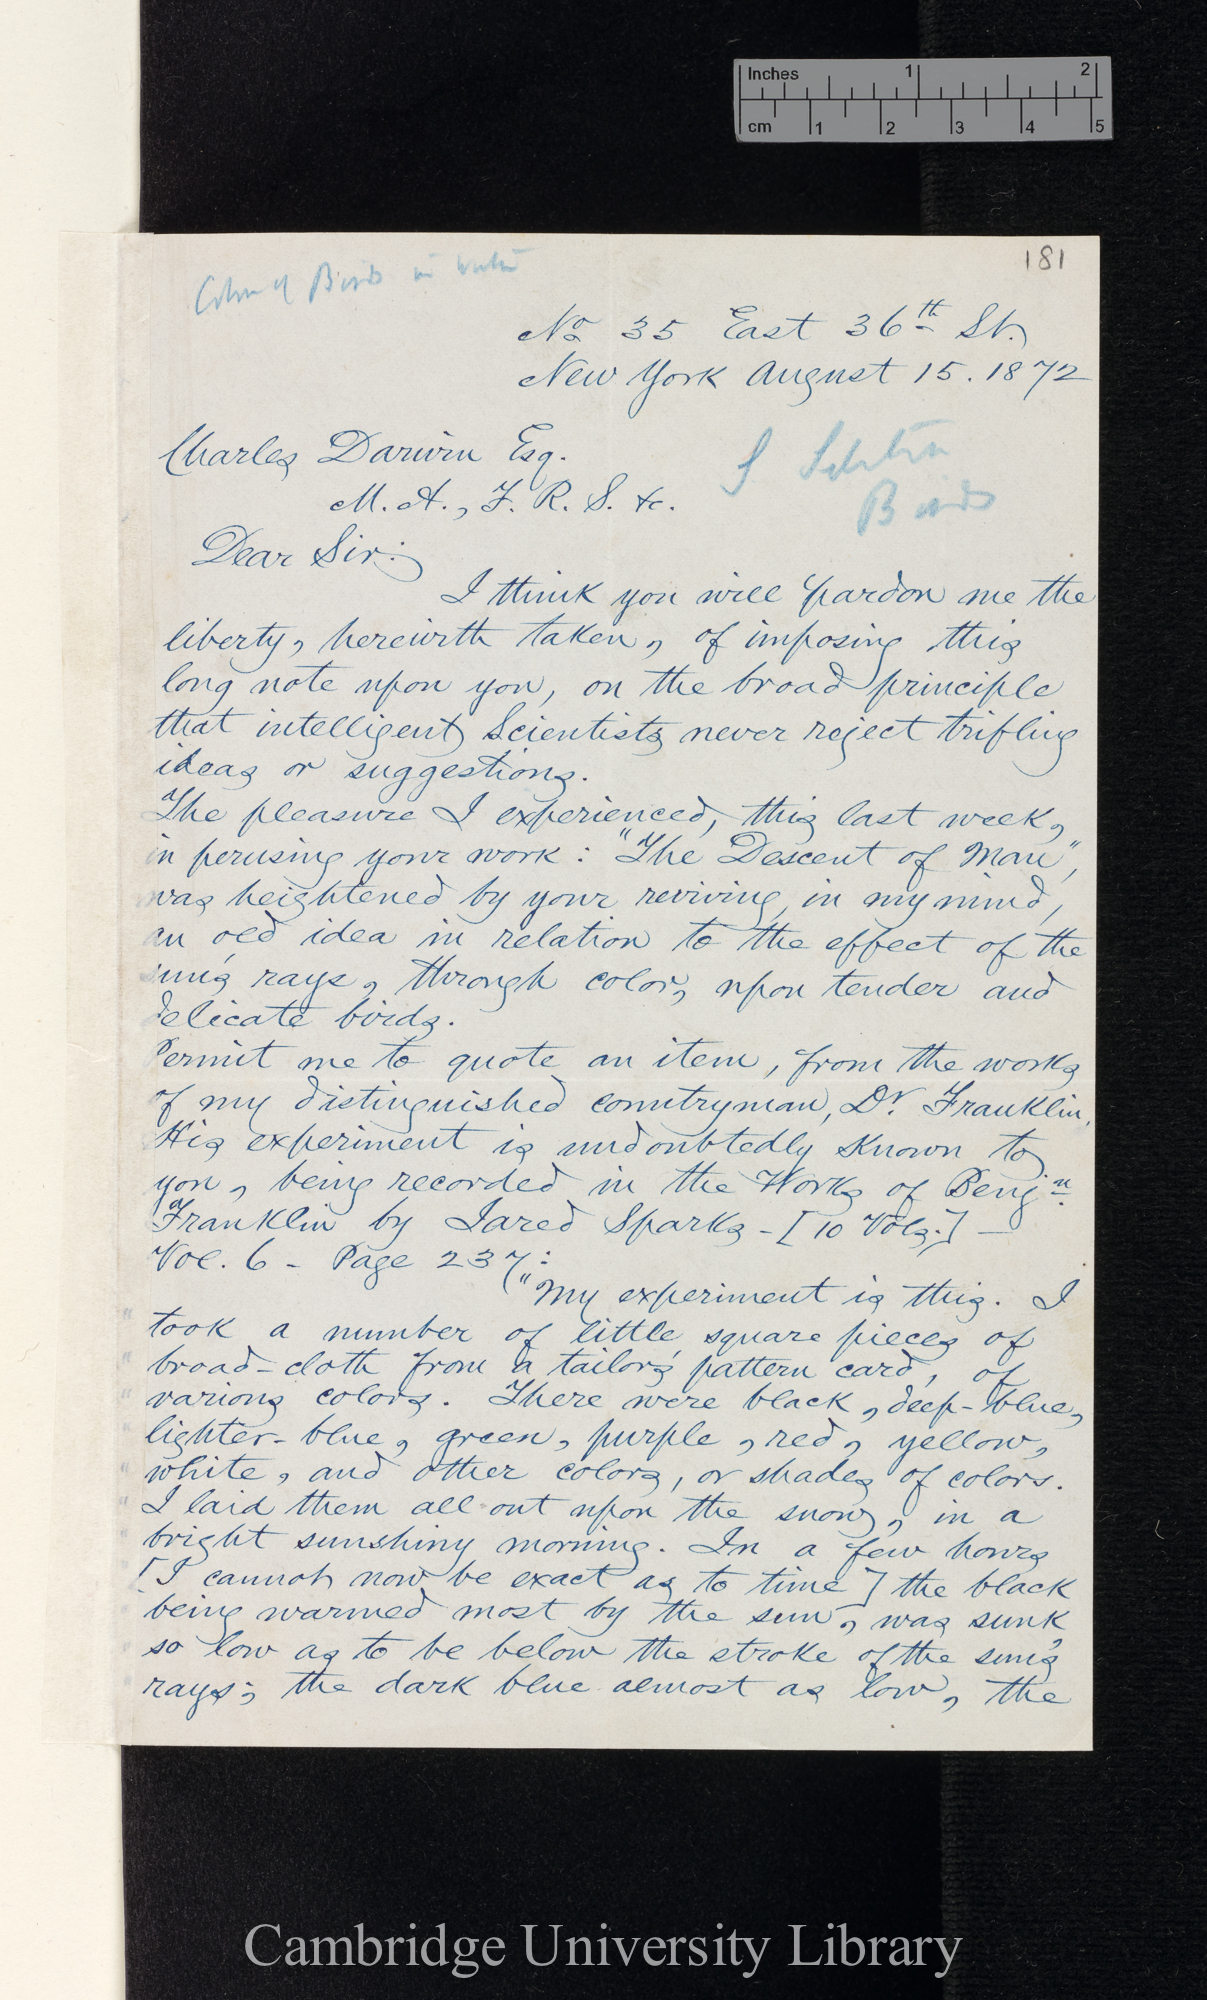 Inches 1 2
cm 1 2 3 4 5
181
Colour of Birds in winter
No 35 East 36th St.
New York August 15. 1872
Charles Darwin Esq.
M.A., F.R.S. &c.
S Selection
Birds
Dear Sir:
I think you will pardon me the
liberty, herewith taken, of imposing this
long note upon you, on the broad principle
that intelligent Scientists never reject trifling
ideas or suggestions.
The pleasure I experienced, this last week,
in perusing your work: "The Descent of Man",
was heightened by your reviving, in my mind,
an old idea in relation to the effect of the
sun's rays, through color, upon tender and
delicate birds.
Permit me to quote an item, from the works
of my distinguished countryman, Dr. Franklin.
His experiment is undoubtedly known to
you, being recorded in the Works of Benjn
Franklin by Jared Sparks - [10 Vols.] —
Vol. 6 - Page 237:
"My experiment is this. I
" took a number of little square pieces of
" broad-cloth from a tailor's pattern card, of
" various colors. There were black, deep-blue,
" lighter-blue, green, purple, red, yellow,
" white, and other colors, or shades of colors.
" I laid them all out upon the snow, in a
" bright sunshiny morning. In a few hours
" [I cannot now be exact as to time] the black
" being warmed most by the sun, was sunk
" so low as to be below the stroke of the sun's
" rays; the dark blue almost as low, the
Cambridge University Library